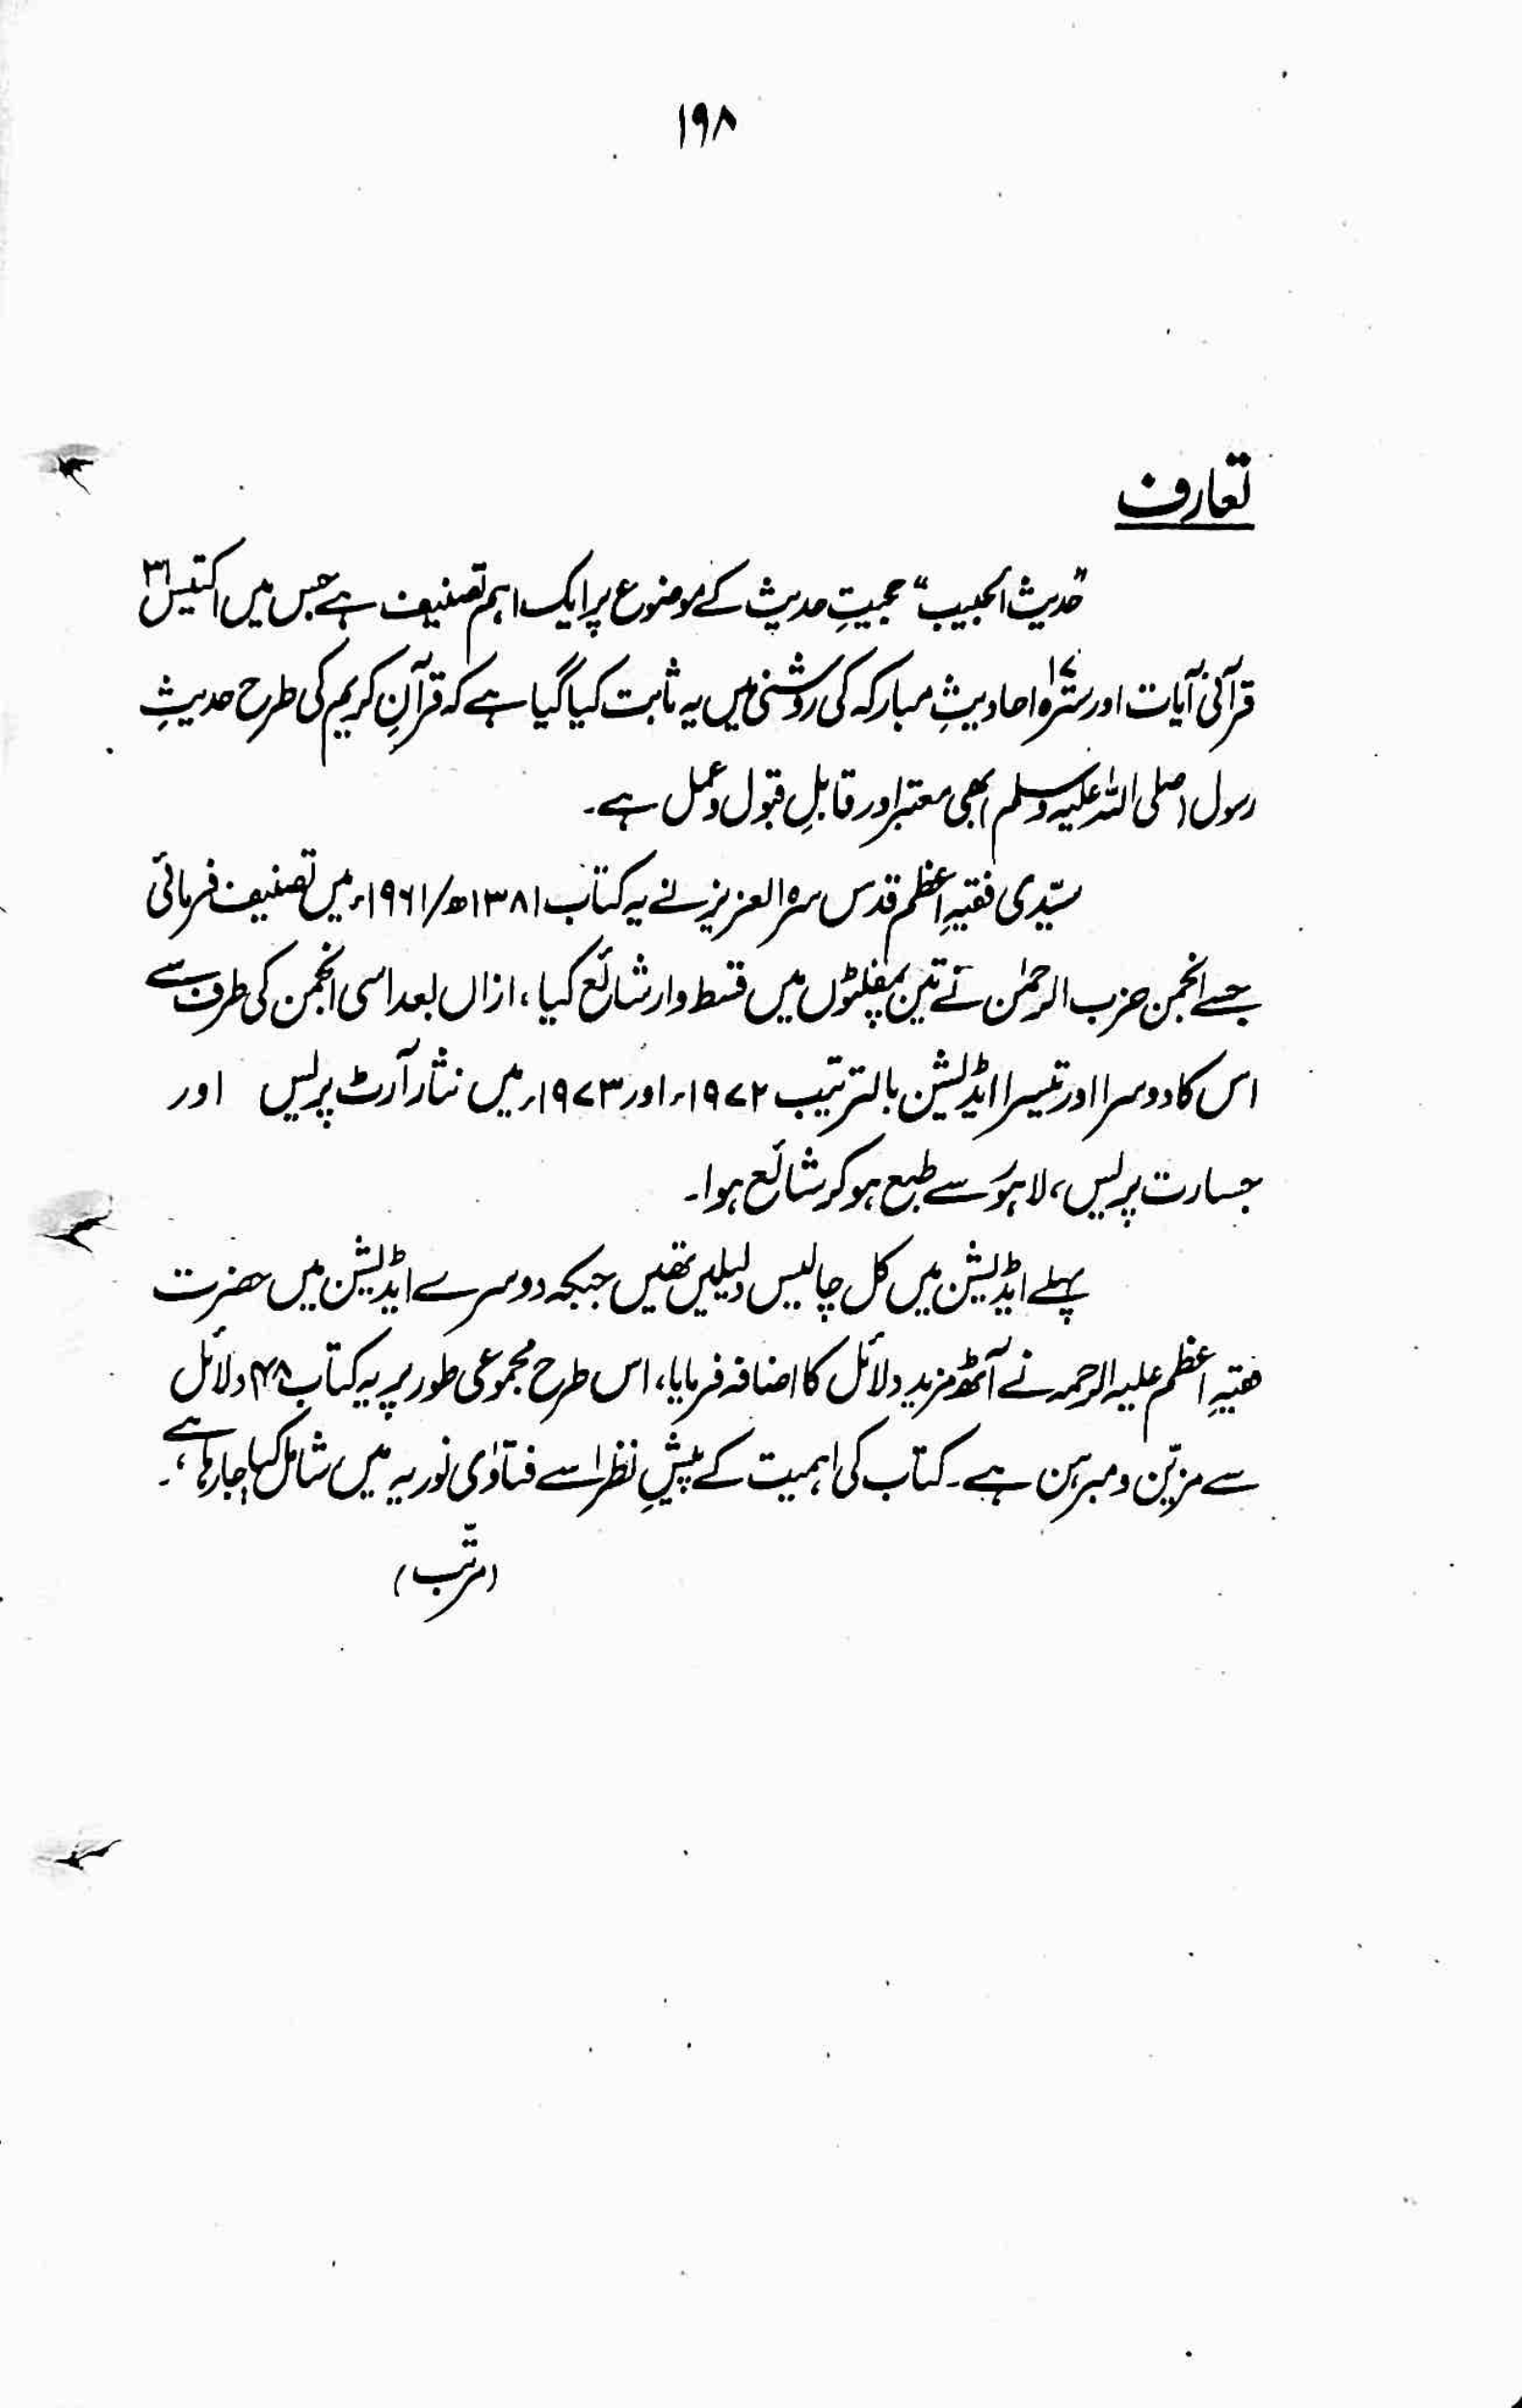 ۱۹۸
تعارف
”حدیث الحبیب“ حجیتِ حدیث کے موضوع پر ایک اہم تصنیف ہے جس میں اکتیس ۳۱
قرآنی آیات اور سترہ ۱۷ احادیثِ مبارکہ کی روشنی میں یہ ثابت کیا گیا ہے کہ قرآنِ کریم کی طرح حدیثِ
رسول (صلی اللہ علیہ وسلم) بھی معتبر اور قابلِ قبول و عمل ہے۔
سیّدی فقیہِ اعظم قدس سرہ العزیز نے یہ کتاب ۱۳۸۱ھ/۱۹۶۱ء میں تصنیف فرمائی
جسے انجمن حزب الرحمٰن نے تین پمفلٹوں میں قسط وار شائع کیا، ازاں بعد اسی انجمن کی طرف سے
اس کا دوسرا اور تیسرا ایڈیشن بالترتیب ۱۹۷۲ء اور ۱۹۷۳ء میں نثار آرٹ پریس اور
جسارت پریس، لاہور سے طبع ہو کر شائع ہوا۔
پہلے ایڈیشن میں کل چالیس دلیلیں تھیں جبکہ دوسرے ایڈیشن میں حضرت
فقیہِ اعظم علیہ الرحمہ نے آٹھ مزید دلائل کا اضافہ فرمایا، اس طرح مجموعی طور پر یہ کتاب ۴۸ دلائل
سے مزیّن و مبرہن ہے۔ کتاب کی اہمیت کے پیشِ نظر اسے فتاوٰی نوریہ میں شامل کیا جا رہا ہے،۔
(مرتّب)